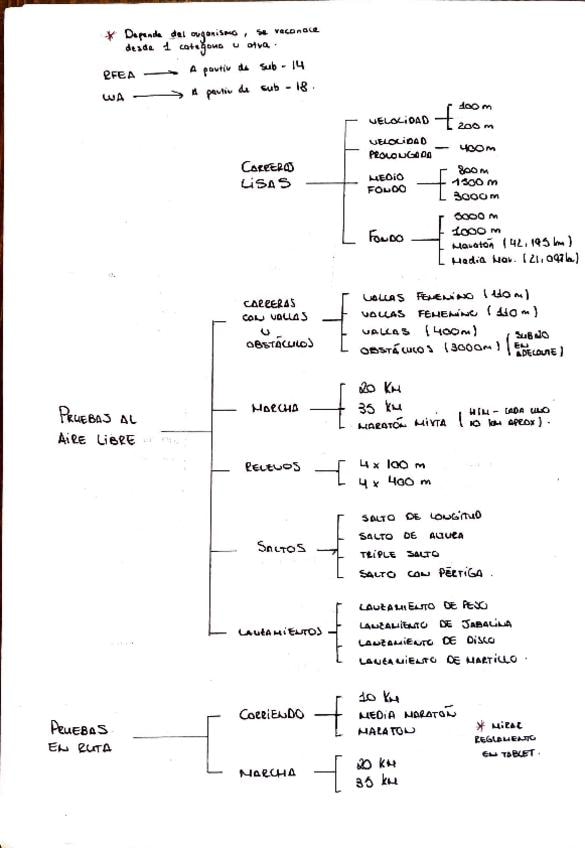 * Depende del organismo, se reconoce
desde 1 categoria u otra.
RFEA → A partir de sub-14
WA → A partir de sub-18.
CARRERAS
LISAS
VELOCIDAD
100m
200m
VELOCIDAD
PROLONGADA
400m
MEDIO
FONDO
800m
1500m
3000m
FONDO
5000m
1000m
Maratón (42,195km)
Media Mar. (21,097km)
PRUEBAS AL
AIRE LIBRE
CARRERAS
CON VALLAS
U
OBSTÁCULOS
VALLAS FEMENINO (110m)
VALLAS FEMENINO (110m)
VALLAS (400m)
OBSTÁCULOS (3000m)
SUB20
EN
ADELANTE
MARCHA
20 KM
35 KM
MARATÓN MIXTA
(H/M - CADA UNO
10 km APROX).
RELEVOS
4 x 100 m
4 x 400 m
SALTOS
SALTO DE LONGITUD
SALTO DE ALTURA
TRIPLE SALTO
SALTO CON PÉRTIGA.
LANZAMIENTOS
LANZAMIENTO DE PESO
LANZAMIENTO DE JABALINA
LANZAMIENTO DE DISCO
LANZAMIENTO DE MARTILLO.
PRUEBAS
EN RUTA
CORRIENDO
10 KM
MEDIA MARATÓN
MARATON
MARCHA
20 KM
35 KM
* MIRAR
REGLAMENTO
EN TABLET.